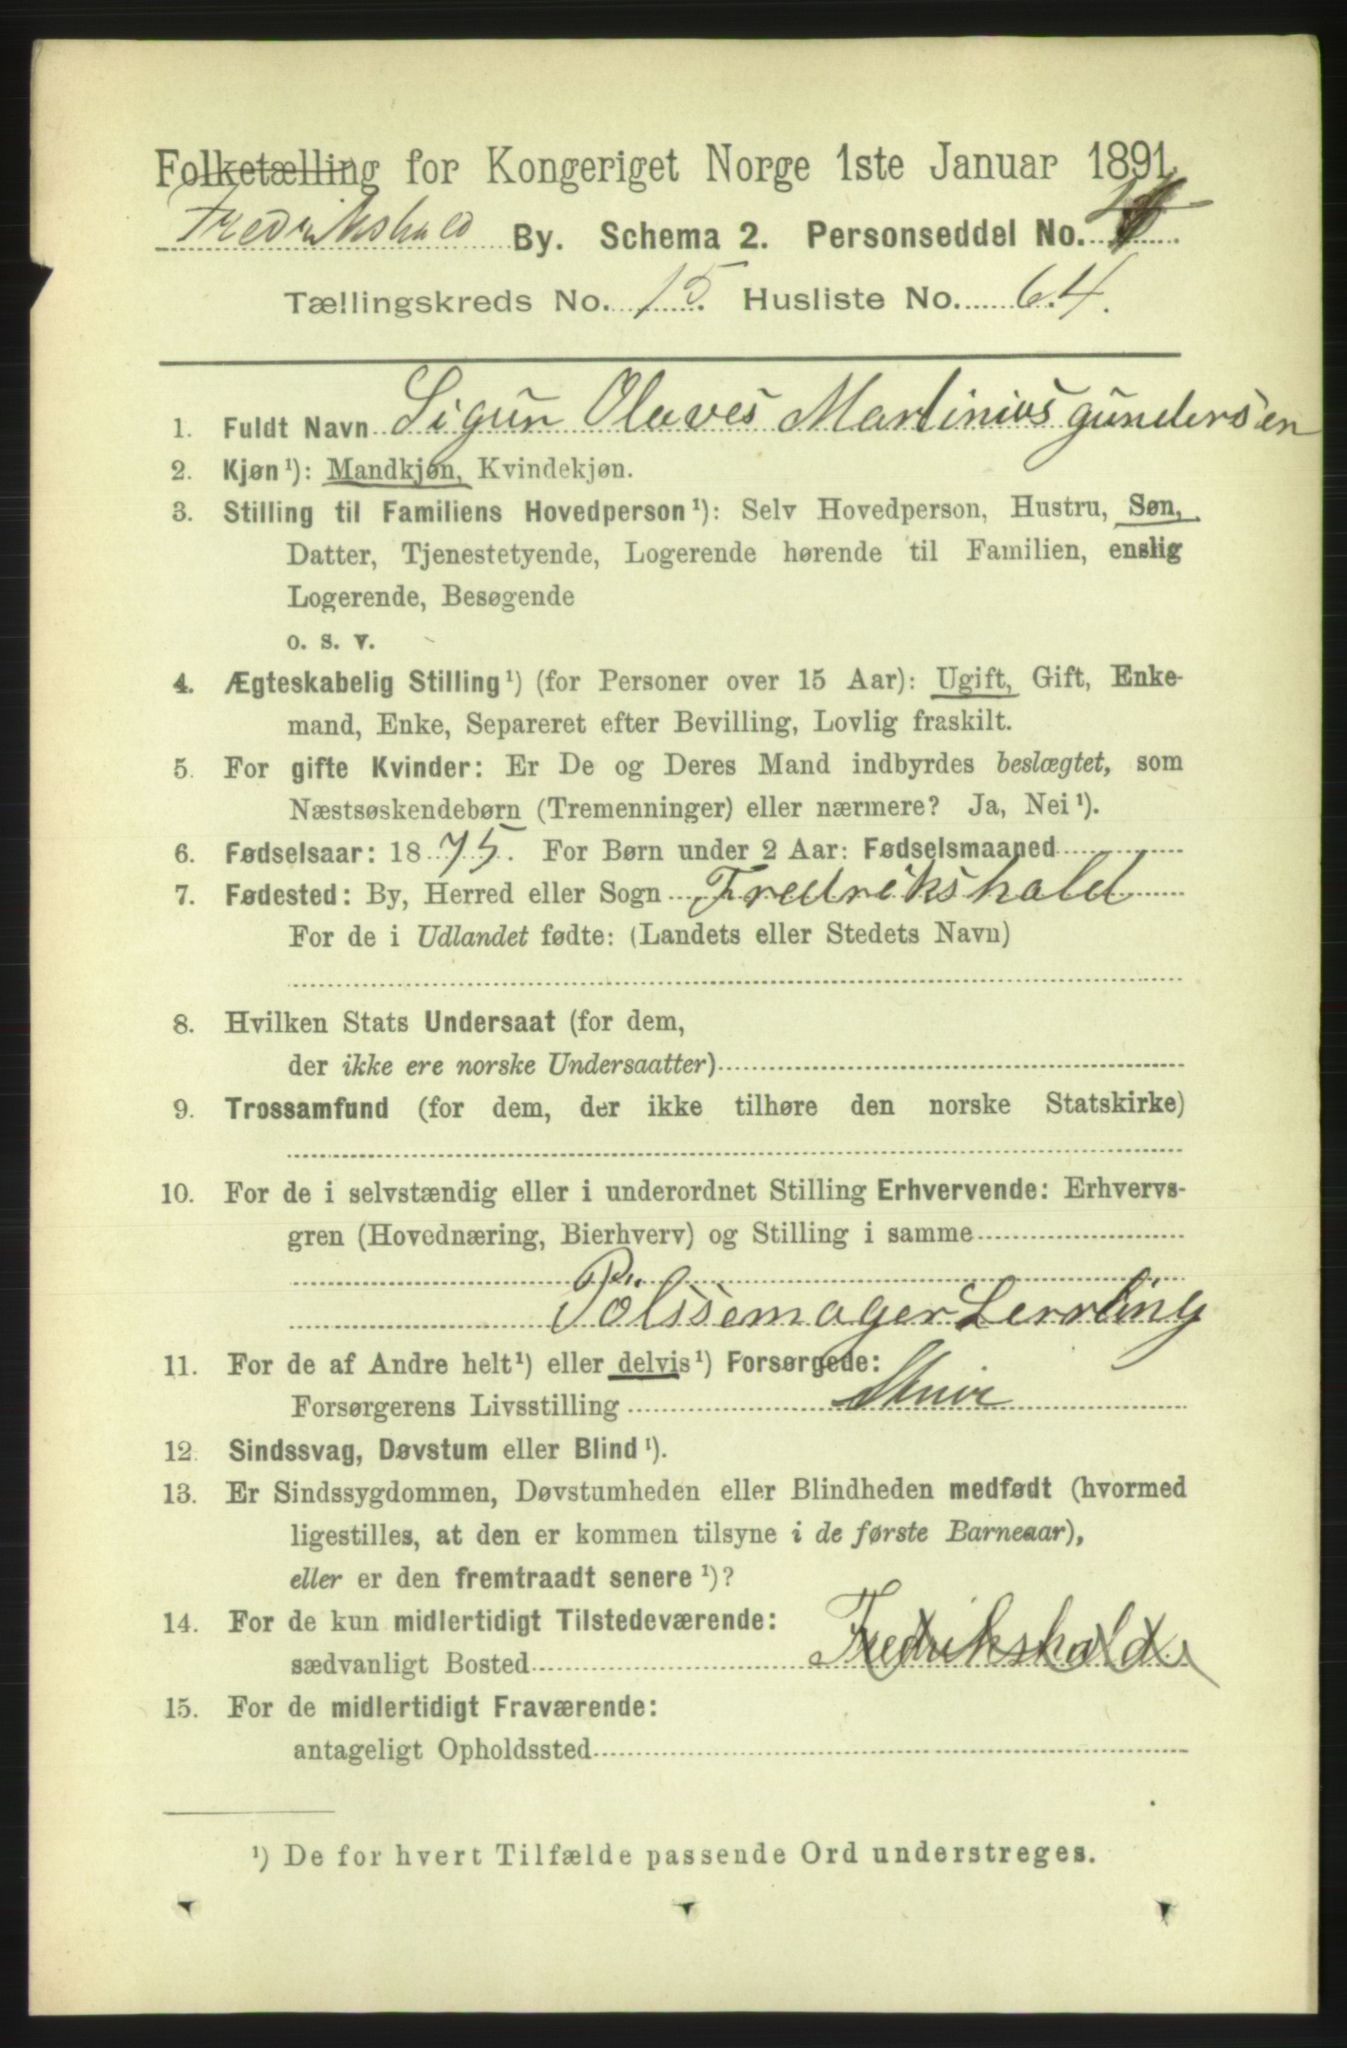 Folketælling for Kongeriget Norge 1ste Januar 1891.
Fredrikshald By. Schema 2. Personseddel No. 4
Tællingskreds No. 15. Husliste No. 64.
1. Fuldt Navn Sigur Olaves Martinius gundersen
2. Kjøn¹): Mandkjøn, Kvindekjøn.
3. Stilling til Familiens Hovedperson¹): Selv Hovedperson, Hustru, Søn,
Datter, Tjenestetyende, Logerende hørende til Familien, enslig
Logerende, Besøgende
o. s. v.
4. Ægteskabelig Stilling¹) (for Personer over 15 Aar): Ugift, Gift, Enke-
mand, Enke, Separeret efter Bevilling, Lovlig fraskilt.
5. For gifte Kvinder: Er De og Deres Mand indbyrdes beslægtet, som
Næstsøskendebørn (Tremenninger) eller nærmere? Ja, Nei¹).
6. Fødselsaar: 1875. For Børn under 2 Aar: Fødselsmaaned
7. Fødested: By, Herred eller Sogn Fredrikshald
For de i Udlandet fødte: (Landets eller Stedets Navn)
8. Hvilken Stats Undersaat (for dem,
der ikke ere norske Undersaatter)
9. Trossamfund (for dem, der ikke tilhøre den norske Statskirke)
10. For de i selvstændig eller i underordnet Stilling Erhvervende: Erhvervs-
gren (Hovednæring, Bierhverv) og Stilling i samme
Pölssemager Lerrling
11. For de af Andre helt¹) eller delvis¹) Forsørgede:
Forsørgerens Livsstilling
12. Sindssvag, Døvstum eller Blind¹).
13. Er Sindssygdommen, Døvstumheden eller Blindheden medfødt (hvormed
ligestilles, at den er kommen tilsyne i de første Barneaar),
eller er den fremtraadt senere¹)?
14. For de kun midlertidigt Tilstedeværende:
sædvanligt Bosted Fredrikshald.
15. For de midlertidigt Fraværende:
antageligt Opholdssted
¹) De for hvert Tilfælde passende Ord understreges.